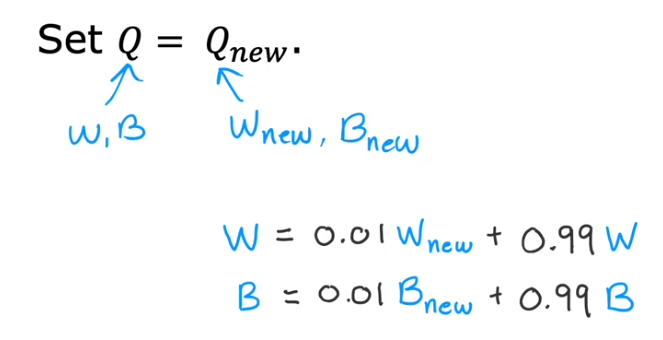 Set Q = Q_new.
W, B W_new, B_new
W = 0.01 W_new + 0.99 W
B = 0.01 B_new + 0.99 B